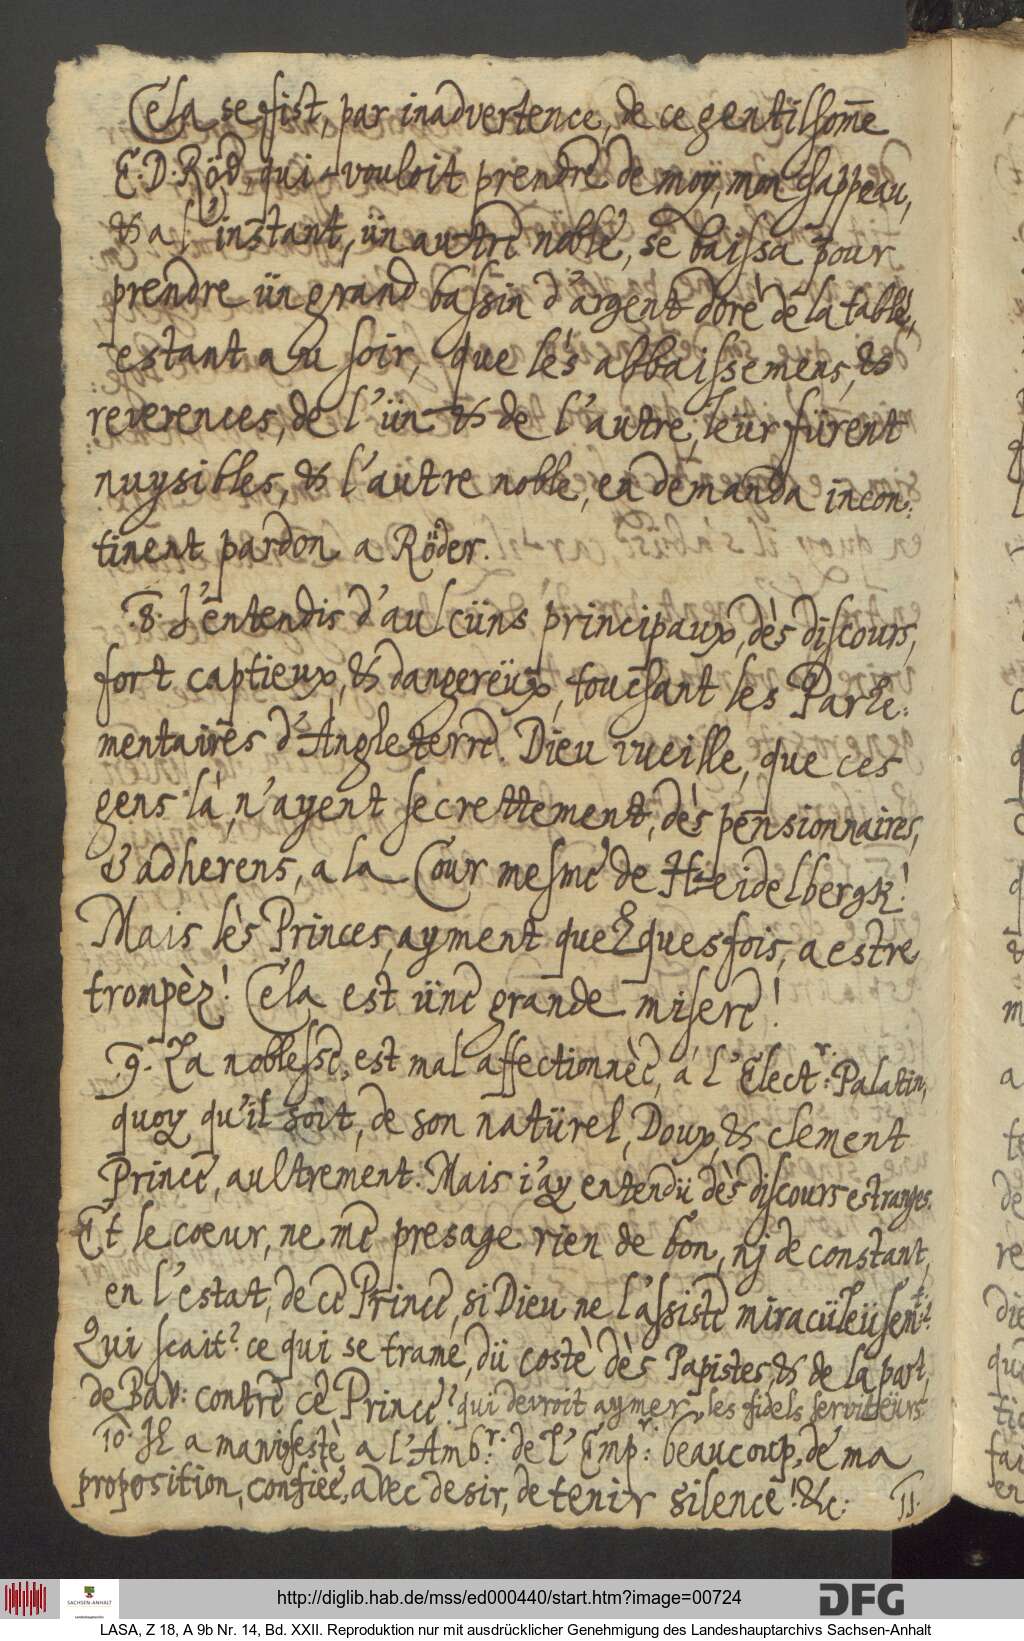 Cela se fist, par inadvertence, de ce gentilhom̅e
E. D. Röd, qui vouloit prendre de moy, mon chappeau,
& a l'instant, ün autre noble, se baissa pour
prendre ün grand bassin d'argent doré de la table,
estant au soir, que lès abbaissemens, &
reverences, de l'ün & de l'autre, leür fürent
nuysibles, & l'autre noble, en demanda incon:
tinent pardon a Röder.
8. J'entendis d'aulcüns principaux, dès discours,
fort captieux, & dangereüx, touchant les Parle:
mentaires d'Angleterre. Dieu vueille, que ces
gens là, n'ayent secrettement, dès pensionnaires,
& adherens, a la Cour mesme de Heidelbergk!
Mais lès Princes, ayment quelquesfois, a estre
trompèz! Cela est üne grande misere!
9. La noblesse, est mal affectionnèe, a l'Elect.r: Palatin,
quoy qu'il soit, de son natürel, Doux, & clement
Prince, aultrement. Mais i'ay entendü dès discours estranges.
Et le cœur, ne me presage rien de bon, nj de constant,
en l'estat, de ce Prince, si Dieu ne l'assiste miracüleüsem.t:
Qui scait? ce qui se trame, dü costè dès Papistes, & de la part,
de Bav: contre ce Prince? qui devroit aymer, les fidels serviteürs.
10. Il a manifestè a l'Amb.r: de l'Emp.r: beaucoup, de ma
proposition, confiée, avec desir, de tenir silence! &c:
11.
http://diglib.hab.de/mss/ed000440/start.htm?image=00724
SACHSEN-ANHALT
DFG
LASA, Z 18, A 9b Nr. 14, Bd. XXII. Reproduktion nur mit ausdrücklicher Genehmigung des Landeshauptarchivs Sachsen-Anhalt